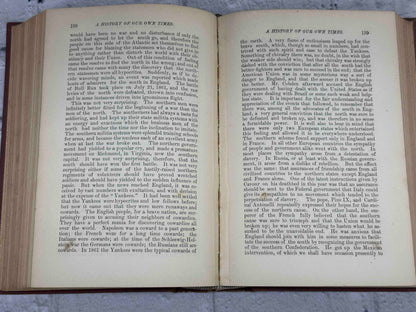 138
A HISTORY OF OUR OWN TIMES.
would have been no war and no disturbance if only the
north had agreed to let the south go, and therefore the
people on this side of the Atlantic set themselves to find
good cause for blaming the statesmen who did not give in
to anything rather than disturb the world with their obstinacy
and their Union. Out of this condition of feeling
came the resolve to find the north in the wrong; and out of
that resolve came with many the discovery that the northern
statesmen were all hypocrites. Suddenly, as if to decide
wavering minds, an event was reported which made
hosts of admirers for the south in England. The battle
of Bull Run took place on July 21, 1861, and the raw
levies of the north were defeated, thrown into confusion,
and in some instances driven into ignominious flight.
This was not very surprising. The southern men were
infinitely better fitted for the beginning of a war than the
men of the north. The southerners had always a taste for
soldiering, and had kept up their state militia systems with
an energy and exactness which the business men of the
north had neither the time nor the inclination to imitate.
The southern militia systems were splendid training schools
for arms, and became the nucleus each of an excellent army
when at last the war broke out. The northern government
had yielded to a popular cry, and made a premature
movement on Richmond, in Virginia, now the southern
capital. It was not very surprising, therefore, that the
south should have won the first battle. It was not very
surprising either if some of the hastily-raised northern
regiments of volunteers should have proved wretched
soldiers and should have yielded to the sudden influence of
panic. But when the news reached England, it was received
by vast numbers with exultation, and with derision
at the expense of the "Yankees." It had been well settled
that the Yankees were hypocrites and low fellows before;
but now it came out that they were mere runaways and
cowards. The English people, for a brave nation, are surprisingly
given to accusing their neighbors of cowardice.
They have a perfect mania for discovering cowardice all
over the world. Napoleon was a coward to a past generation;
the French were for a long time cowards; the
Italians were cowards; at the time of the Schleswig-Holstein
war the Germans were cowards; the Russians still are
cowards. In 1861 the Yankees were the typical cowards of
A HISTORY OF OUR OWN TIMES.
139
the earth. A very flurry of enthusiasm
brave south, which, though so small in numbers, had contrived
with such spirit and ease to defeat the Yankees.
Something of there was, no doubt, in this wish that
the weaker side should win; but that chivalry was strongly
dashed with the conviction that after all the south had the
better fighters and was sure to succeed in the end; that the
American Union was in some mysterious way a sort of
danger to England, and that the sooner it was broken up
the better. Mr. Cobden afterward accused the English
government of having dealt with the United States as if
they were dealing with Brazil or some such weak and helpless
state. It is important for the fair understanding and
appreciation of the events that followed, to remember that
there was, among all the advocates of the south in England,
a very general conviction that the north was sure to
be defeated and broken up, and was therefore in no sense
a formidable power. It is well also to bear in mind that
there were only two European states which entertained
this feeling and allowed it to be everywhere understood.
The southern scheme found support only in England and
in France. In all other European countries the sympathy
of people and government alike went with the north. In
most places the sympathy arose from a detestation of
slavery. In Russia, or at least with the Russian government,
it arose from a dislike of rebellion. But the effect
was the same: that assurances of friendship came from all
civilized countries to the northern states except England
and France alone. One of the latest instructions given by
Cavour on his deathbed in this year was that an assurance
should be sent to the Federal government that Italy could
give its sympathies to no movement which tended to the
perpetuation of slavery. The pope, Pius IX., and Cardinal
Antonelli repeatedly expressed their hopes for the success
of the northern cause. On the other hand, the emperor
of the French fully believed that the southern
cause was sure to triumph, and that the Union would be
broken up; he was even very willing to hasten what he assumed
to be the unavoidable end. He was anxious that
England should join with him in some measures to facilitate
the success of the south by recognizing the government
of the southern Confederation. He got up the Mexican
intervention, of which we shall have occasion presently to